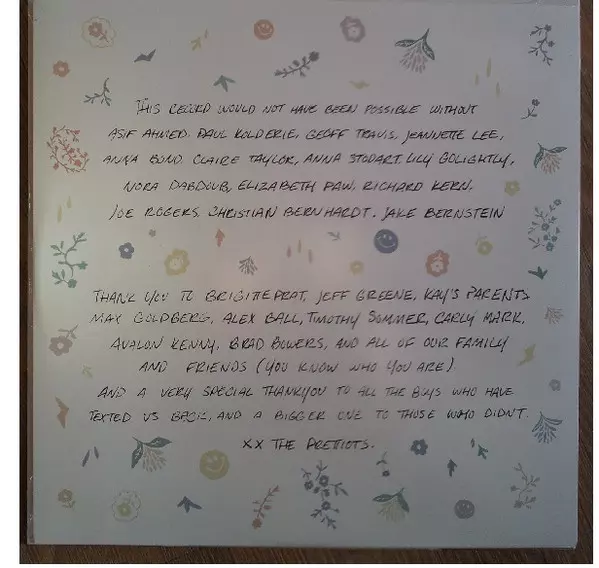 THIS RECORD WOULD NOT HAVE BEEN POSSIBLE WITHOUT
ASIF AHMED, PAUL KOLDERIE, GEOFF TRAVIS, JEANNETTE LEE,
ANNA BOND, CLAIRE TAYLOR, ANNA STODART, LILY GOLIGHTLY,
NORA DABDOUB, ELIZABETH PAW, RICHARD KERN,
JOE ROGERS, CHRISTIAN BERNHARDT, JAKE BERNSTEIN
THANK YOU TO BRIGITTE PRAT, JEFF GREENE, KAY'S PARENTS
MAX GOLDBERG, ALEX BALL, TIMOTHY SOMMER, CARLY MARK,
AVALON KENNY, BRAD BOWERS, AND ALL OF OUR FAMILY
AND FRIENDS (YOU KNOW WHO YOU ARE)
AND A VERY SPECIAL THANKYOU TO ALL THE BOYS WHO HAVE
TEXTED US BACK, AND A BIGGER ONE TO THOSE WHO DIDN'T.
XX THE PRETTIOTS.